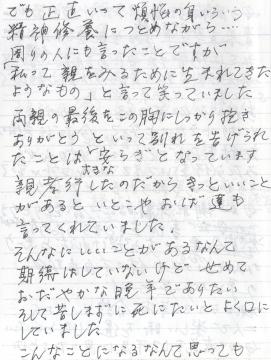 でも正直いって煩悩の身いろいろ
精神修養につとめながら‥‥
周りの人にも言ったことですが
「私って親をみるために生まれてきた
ようなもの」と言って笑っていました
両親の最後をこの胸にしっかり抱き
ありがとうといって別れを告げられ
たことは安らぎとなっています
親孝行したのだからきっといいこと
があるといとこやおばさま達も
言ってくれていました。
そんなにいいことがあるなんて
期待はしていないけど せめて
おだやかな晩年でありたい
そして苦しまずに死にたいとよく口に
していました
こんなことになるなんて思っても